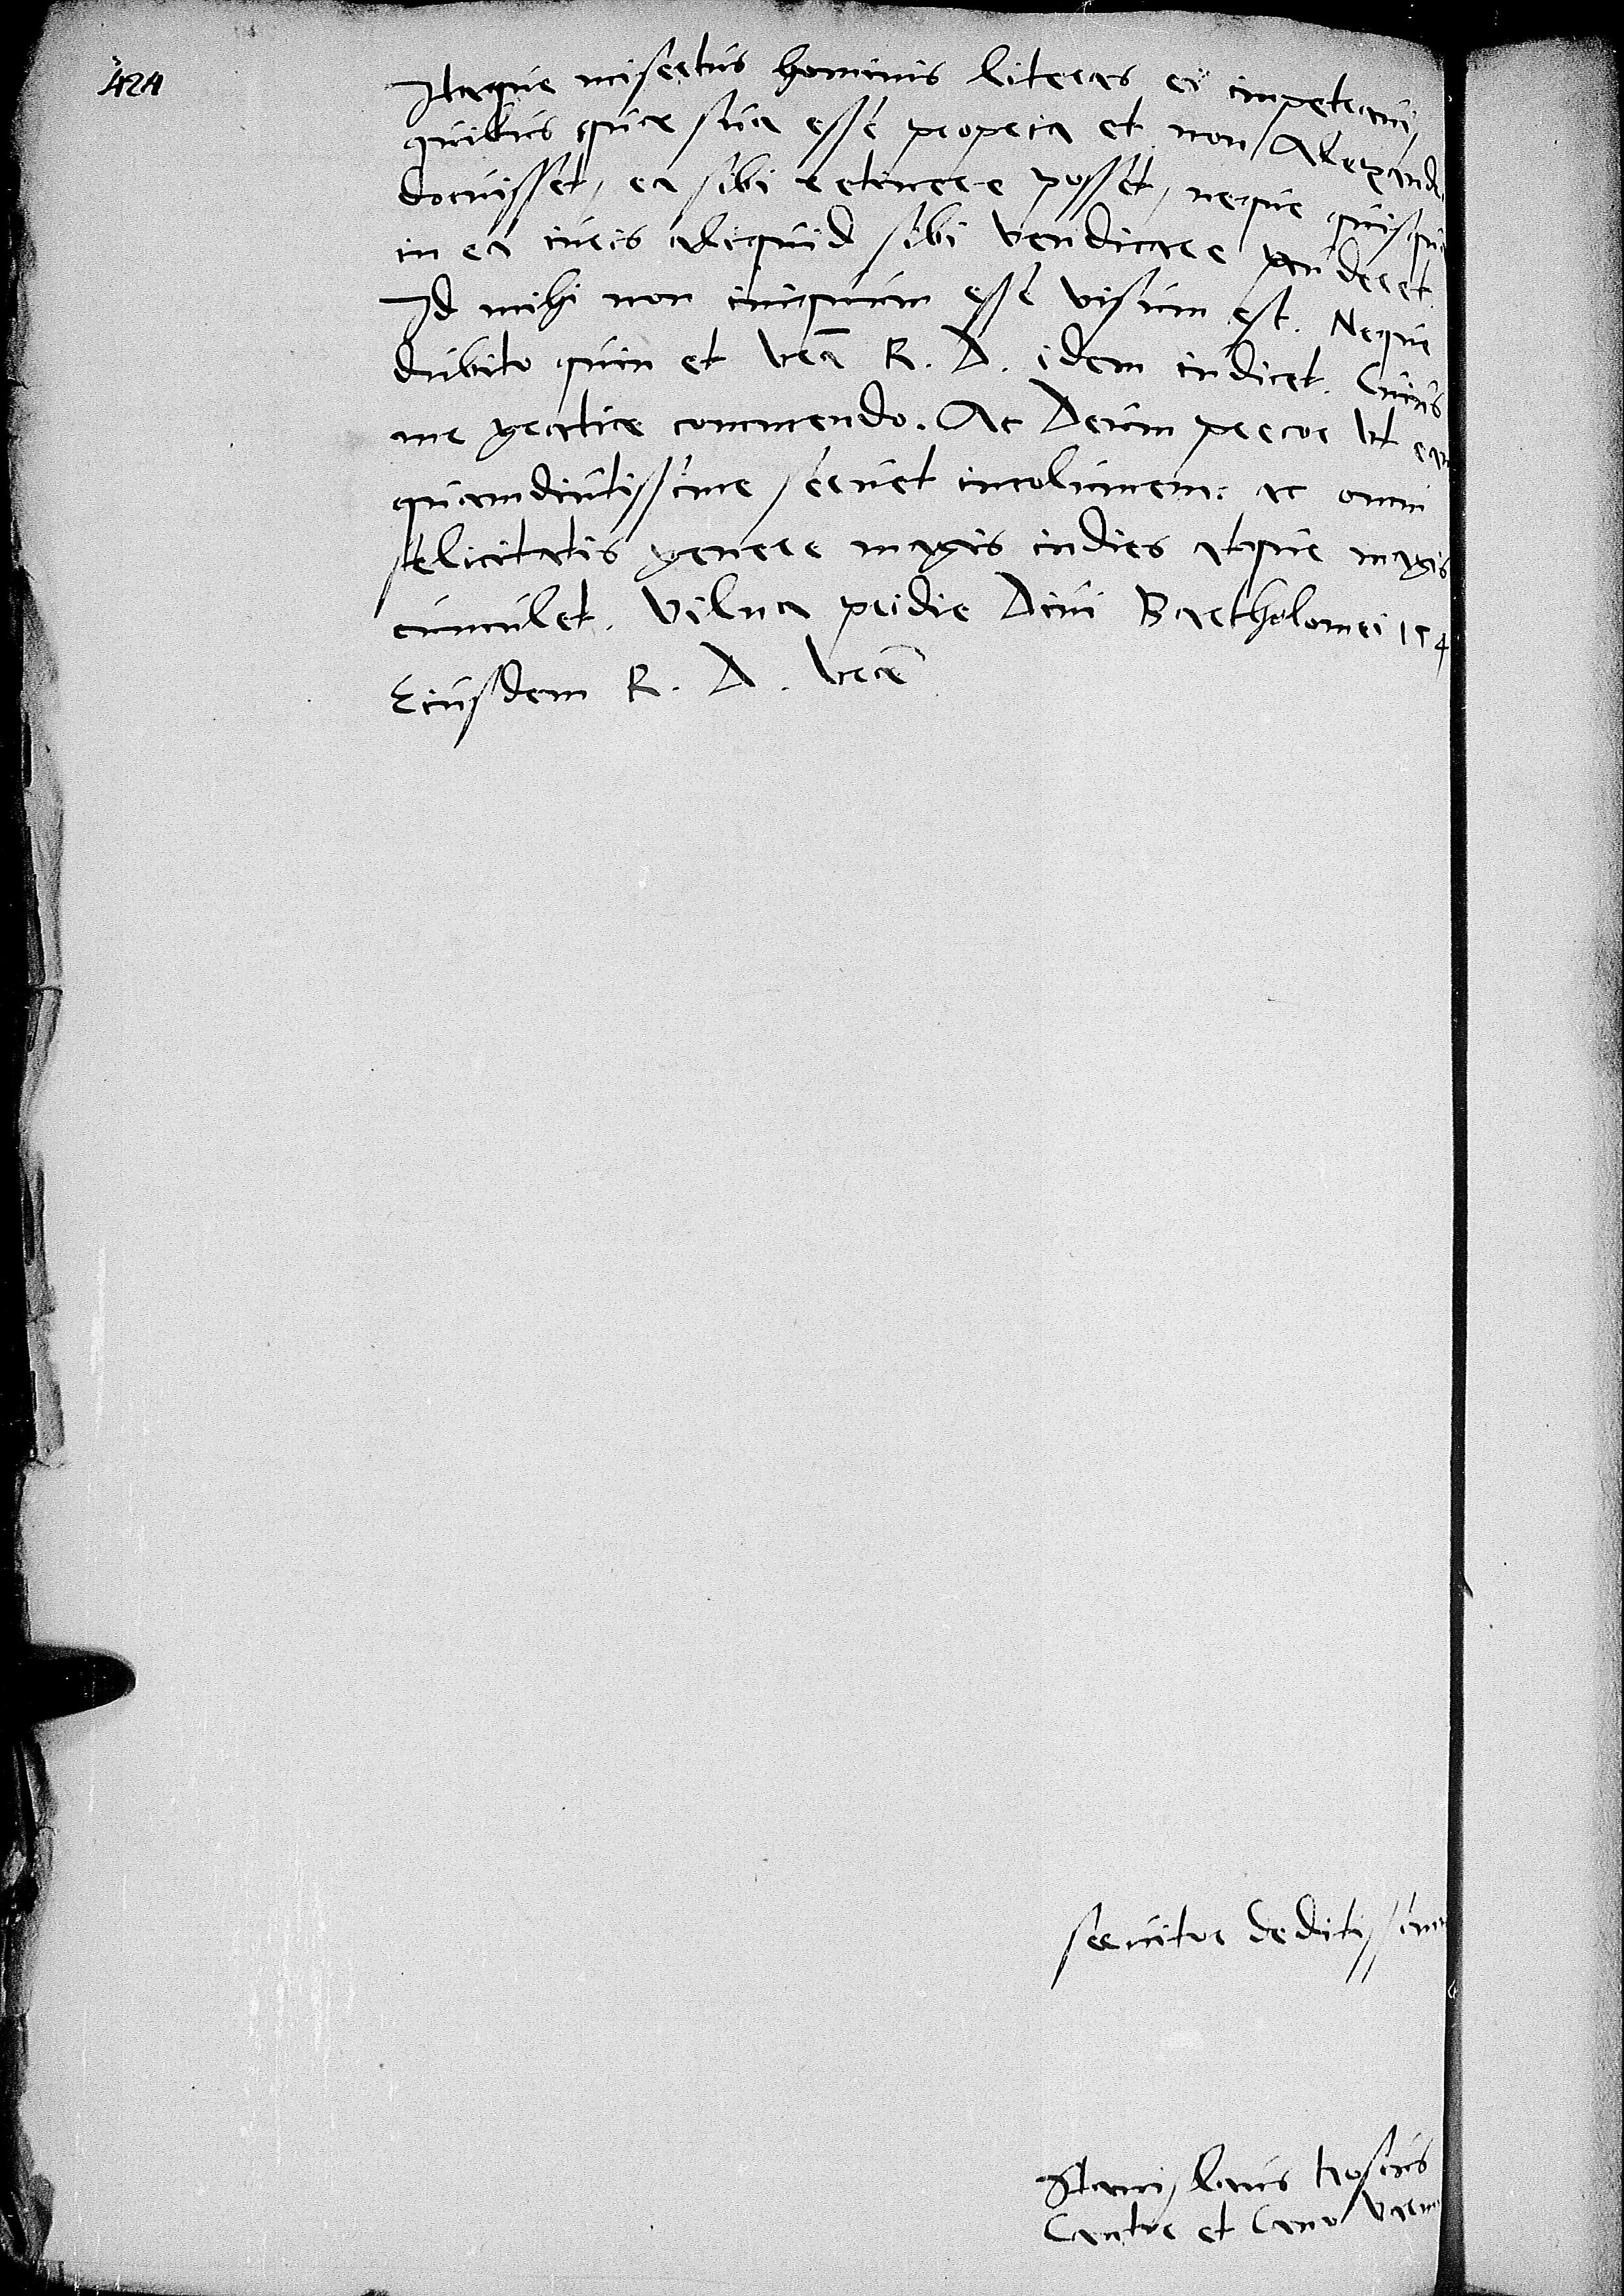 424
Itaque misertus hominis literas ei impetravi,
quibus quae sua esse propria et non Alexand
docuisset, ea sibi retinere posset, neque quisqua
in ea iuris aliquid sibi vendicare
Id mihi non iniquum esse visum est. Neque
dubito quin et Vra R. D. idem iudicet. Cuius
me gratiae commendo. Ac Deum precor ut ea
quamdiutissime servet incolumem: ac omni
felicitatis genere magis indies atque magis
cumulet. Vilna pridie Divi Bartholomei 154
Eiusdem R. D. Vrae
servitor deditissim
Stanislaus Hosius
Cantor et Cano Varm